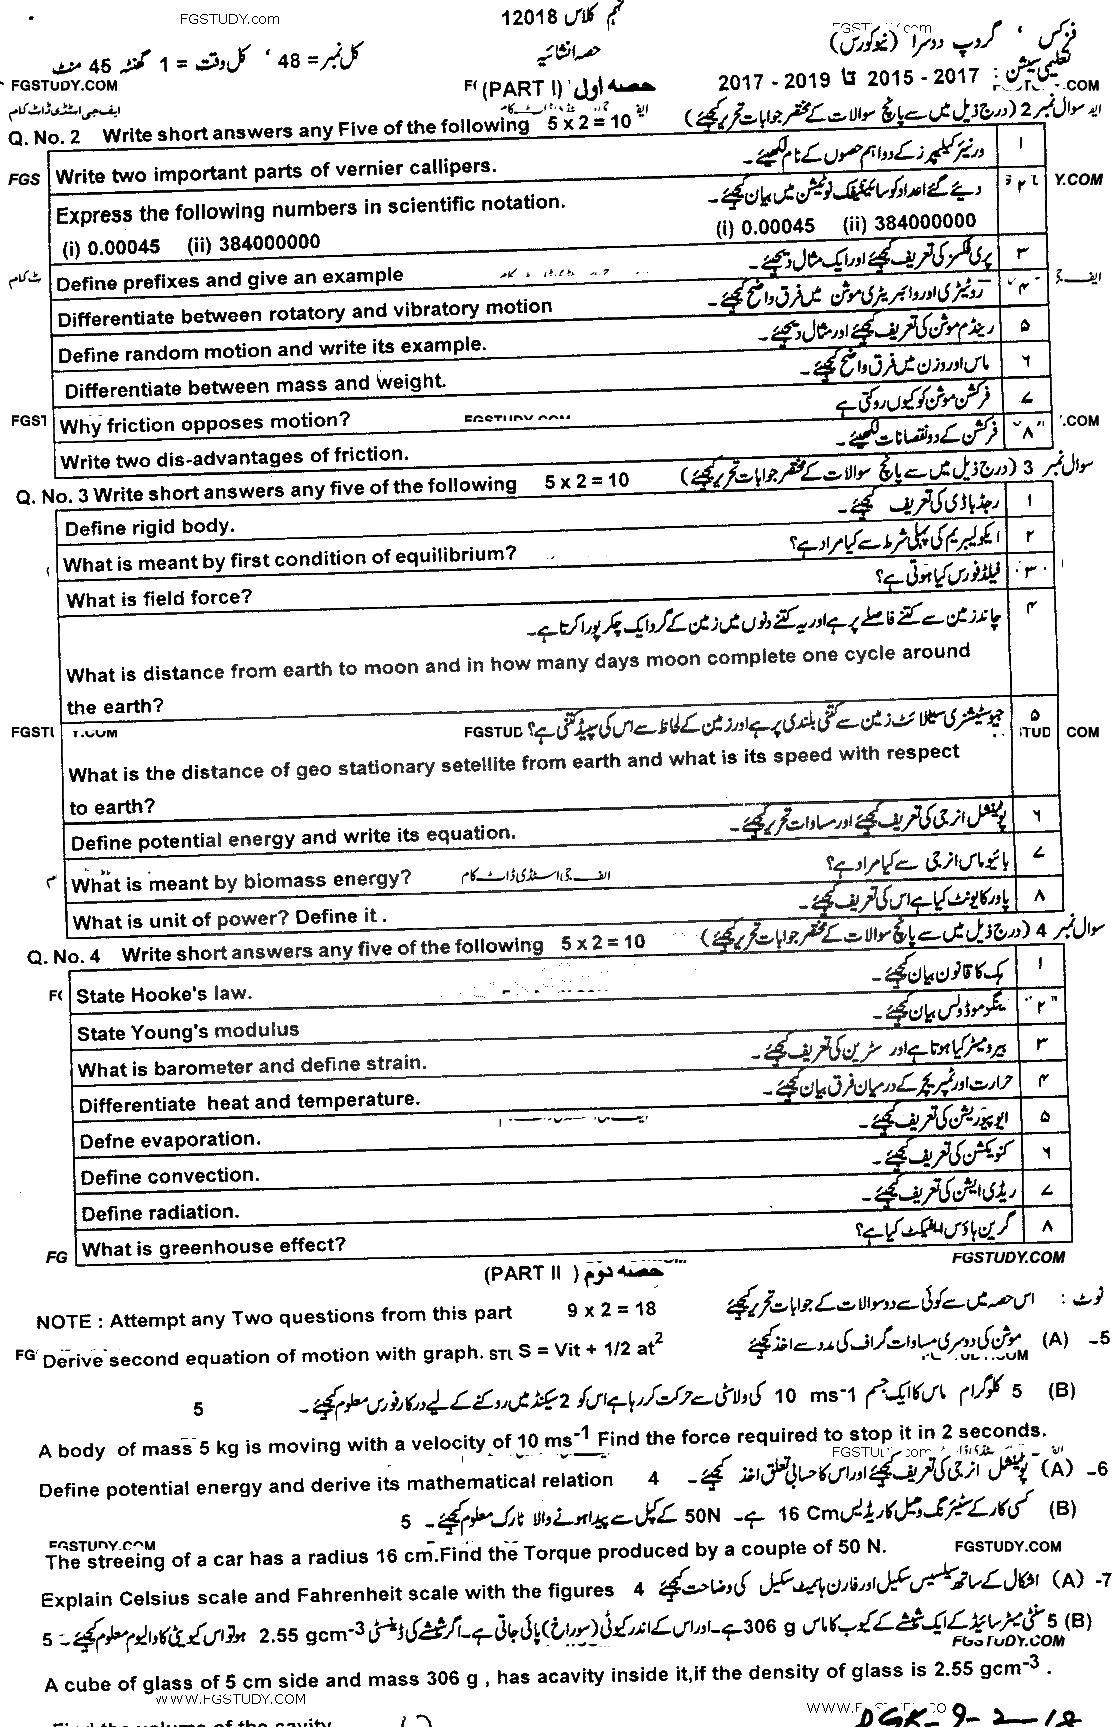 FGSTUDY.com 12018 نہم کلاس FGSTUDY.com
فزکس ، گروپ دوسرا (نیوکورس) حصہ انشائیہ کل نمبر = 48 ' کل وقت = 1 گھنٹہ 45 منٹ
تعلیمی سیشن : 2017 - 2015 تا 2019 - 2017
FGSTUDY.COM (PART I) حصہ اول .COM
ایف جی اسٹڈی ڈاٹ کام
سوال نمبر 2 (درج ذیل میں سے پانچ سوالات کے مختصر جوابات تحریر کیجئے)
Q. No. 2 Write short answers any Five of the following 5 x 2 = 10
۱ ورنیئر کیلیپرز کے دو اہم حصوں کے نام لکھیئے۔
FGS Write two important parts of vernier callipers. Y.COM
۲ دیئے گئے اعداد کو سائینٹیفک نوٹیشن میں بیان کیجئے۔
Express the following numbers in scientific notation.
(i) 0.00045 (ii) 384000000 (i) 0.00045 (ii) 384000000
۳ پری فکسز کی تعریف کیجئے اور ایک مثال دیجئے۔
Define prefixes and give an example
۴ روٹیٹری اور وائبریٹری موشن میں فرق واضح کیجئے۔
Differentiate between rotatory and vibratory motion
۵ رینڈم موشن کی تعریف کیجئے اور مثال دیجئے۔
Define random motion and write its example.
۶ ماس اور وزن میں فرق واضح کیجئے۔
Differentiate between mass and weight.
۷ فرکشن موشن کو کیوں روکتی ہے
FGST Why friction opposes motion? FGSTUDY.COM .COM
۸ فرکشن کے دو نقصانات لکھیئے۔
Write two dis-advantages of friction.
سوال نمبر 3 (درج ذیل میں سے پانچ سوالات کے مختصر جوابات تحریر کیجئے)
Q. No. 3 Write short answers any five of the following 5 x 2 = 10
۱ رجڈ باڈی کی تعریف کیجئے۔
Define rigid body.
۲ ایکولبریم کی پہلی شرط سے کیا مراد ہے؟
What is meant by first condition of equilibrium?
۳ فیلڈ فورس کیا ہوتی ہے؟
What is field force?
۴ چاند زمین سے کتنے فاصلے پر ہے اور یہ کتنے دنوں میں زمین کے گرد ایک چکر پورا کرتا ہے۔
What is distance from earth to moon and in how many days moon complete one cycle around
the earth?
۵ جیوسٹیشنری سیٹلائٹ زمین سے کتنی بلندی پر ہے اور زمین کے لحاظ سے اس کی سپیڈ کتنی ہے؟
FGSTU FGSTUD STUD COM
What is the distance of geo stationary setellite from earth and what is its speed with respect
to earth?
۶ پوٹینشل انرجی کی تعریف کیجئے اور مساوات تحریر کیجئے۔
Define potential energy and write its equation.
۷ بائیو ماس انرجی سے کیا مراد ہے؟
What is meant by biomass energy? ایف جی اسٹڈی ڈاٹ کام
۸ پاور کا یونٹ کیا ہے اس کی تعریف کیجئے۔
What is unit of power? Define it .
سوال نمبر 4 (درج ذیل میں سے پانچ سوالات کے مختصر جوابات تحریر کیجئے)
Q. No. 4 Write short answers any five of the following 5 x 2 = 10
۱ ہک کا قانون بیان کیجئے۔
State Hooke's law.
۲ ینگز موڈولس بیان کیجئے۔
State Young's modulus
۳ بیرومیٹر کیا ہوتا ہے اور سٹرین کی تعریف کیجئے۔
What is barometer and define strain.
۴ حرارت اور ٹمپریچر کے درمیان فرق بیان کیجئے۔
Differentiate heat and temperature.
۵ ایوپیوریشن کی تعریف کیجئے۔
Defne evaporation.
۶ کنویکشن کی تعریف کیجئے۔
Define convection.
۷ ریڈی ایشن کی تعریف کیجئے۔
Define radiation.
۸ گرین ہاؤس ایفیکٹ کیا ہے؟
FG What is greenhouse effect? FGSTUDY.COM
(PART II ) حصہ دوم
نوٹ : اس حصہ میں سے کوئی سے دو سوالات کے جوابات تحریر کیجئے
NOTE : Attempt any Two questions from this part 9 x 2 = 18
5- (A) موشن کی دوسری مساوات گراف کی مدد سے اخذ کیجئے
FG Derive second equation of motion with graph. S = Vit + 1/2 at²
(B) 5 کلوگرام ماس کا ایک جسم 10 ms-1 کی ولاسٹی سے حرکت کر رہا ہے اس کو 2 سیکنڈ میں روکنے کے لیے درکار فورس معلوم کیجئے۔ 5
A body of mass 5 kg is moving with a velocity of 10 ms⁻¹ Find the force required to stop it in 2 seconds.
FGSTUDY.com
6- (A) پوٹینشل انرجی کی تعریف کیجئے اور اس کا حسابی تعلق اخذ کیجئے۔
Define potential energy and derive its mathematical relation 4
(B) کسی کار کے سٹیئرنگ وہیل کا ریڈیس 16 Cm ہے۔ 50N کے کپل سے پیدا ہونے والا ٹارک معلوم کیجئے۔ 5
FGSTUDY.COM FGSTUDY.COM
The streeing of a car has a radius 16 cm.Find the Torque produced by a couple of 50 N.
7- (A) اشکال کے ساتھ سیلسیس سکیل اور فارن ہائیٹ سکیل کی وضاحت کیجئے
Explain Celsius scale and Fahrenheit scale with the figures 4
(B) 5 سنٹی میٹر سائیڈ کے ایک شیشے کے کیوب کا ماس 306 g ہے۔ اور اس کے اندر کیوٹی (سوراخ) پائی جاتی ہے۔ اگر شیشے کی ڈینسٹی 2.55 gcm⁻³ ہو تو اس کیویٹی کا والیوم معلوم کیجئے۔ 5
FGSTUDY.COM
A cube of glass of 5 cm side and mass 306 g , has acavity inside it,if the density of glass is 2.55 gcm⁻³ .
WWW.FGSTUDY.COM
Find the volume of the cavity
DGK-9-2-18